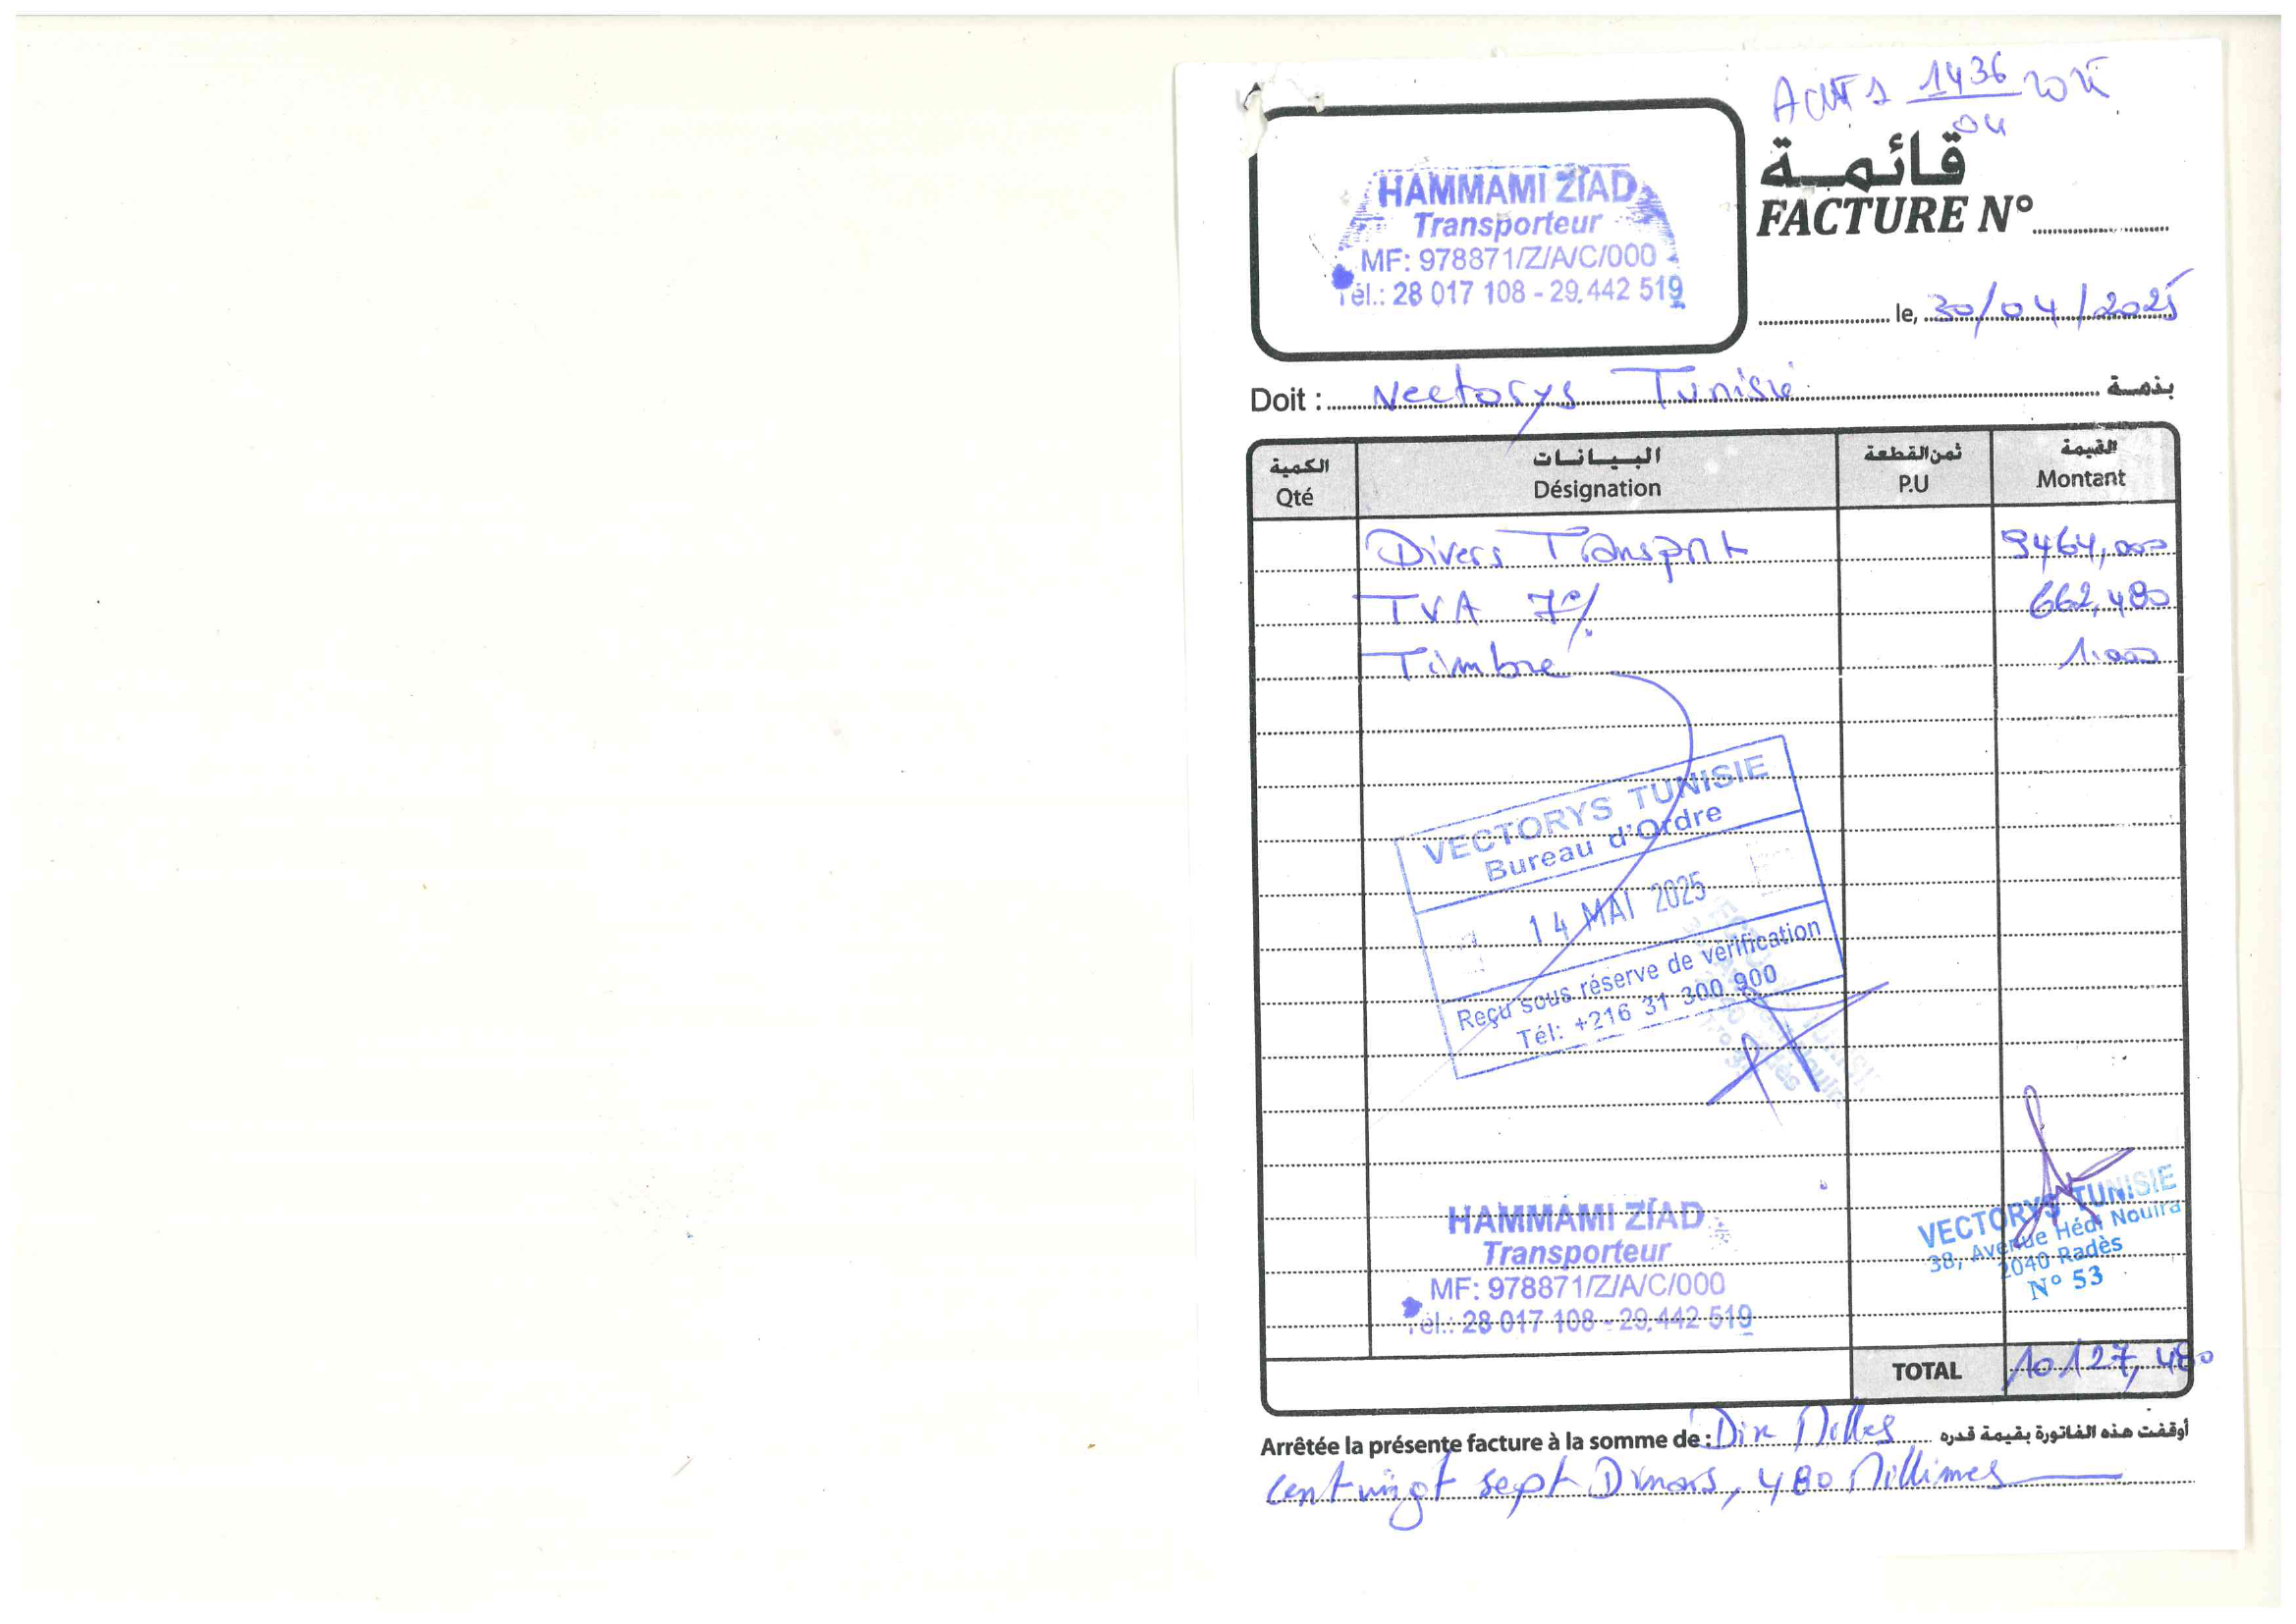 ACHTS 1436
04
قائمة
FACTURE N°
HAMMAMI ZIAD
Transporteur
MF: 978871/Z/A/C/000
Tél.: 28 017 108 - 29.442 519
le, 30/04/2025
Doit : Vectorys Tunisie بذمة
الكمية البيانات ثمن القطعة القيمة
Qté Désignation P.U Montant
Divers Transport 9464,000
TVA 7% 662,480
Timbre 1.000
VECTORYS TUNISIE
Bureau d'Ordre
14 MAI 2025
Reçu sous réserve de vérification
Tél: +216 31 300 900
HAMMAMI ZIAD
Transporteur
MF: 978871/Z/A/C/000
Tél.: 28 017 108 - 29.442 519
VECTORYS TUNISIE
38, Avenue Hédi Nouira
2040 Radès
N° 53
TOTAL 10127,480
Arrêtée la présente facture à la somme de : Dix Milles أوقفت هذه الفاتورة بقيمة قدره
cent vingt sept Dinars, 480 Millimes